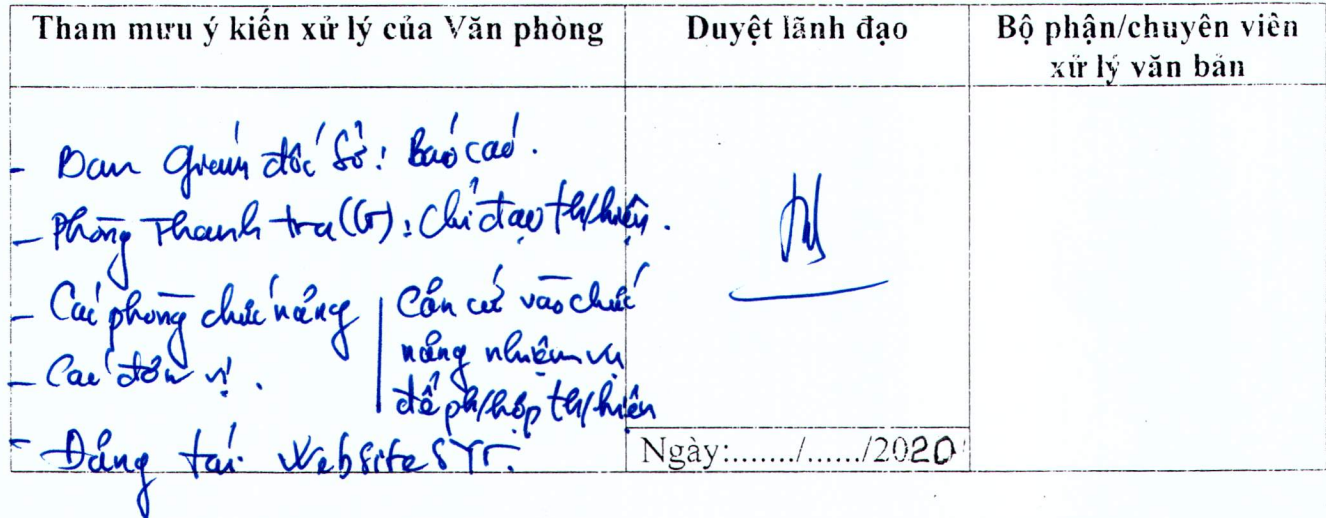 Tham mưu ý kiến xử lý của Văn phòng
Duyệt lãnh đạo
Bộ phận/chuyên viên
xử lý văn bản
- Ban Giám đốc Sở: Báo cáo.
- Phòng Thanh tra (CT): Chỉ đạo th/hiện.
- Các phòng chức năng
- Các đơn vị.
Căn cứ vào chức
năng nhiệm vụ
để ph/hợp th/hiện
- Đăng tải Website SYT.
Ngày:......./....../2020